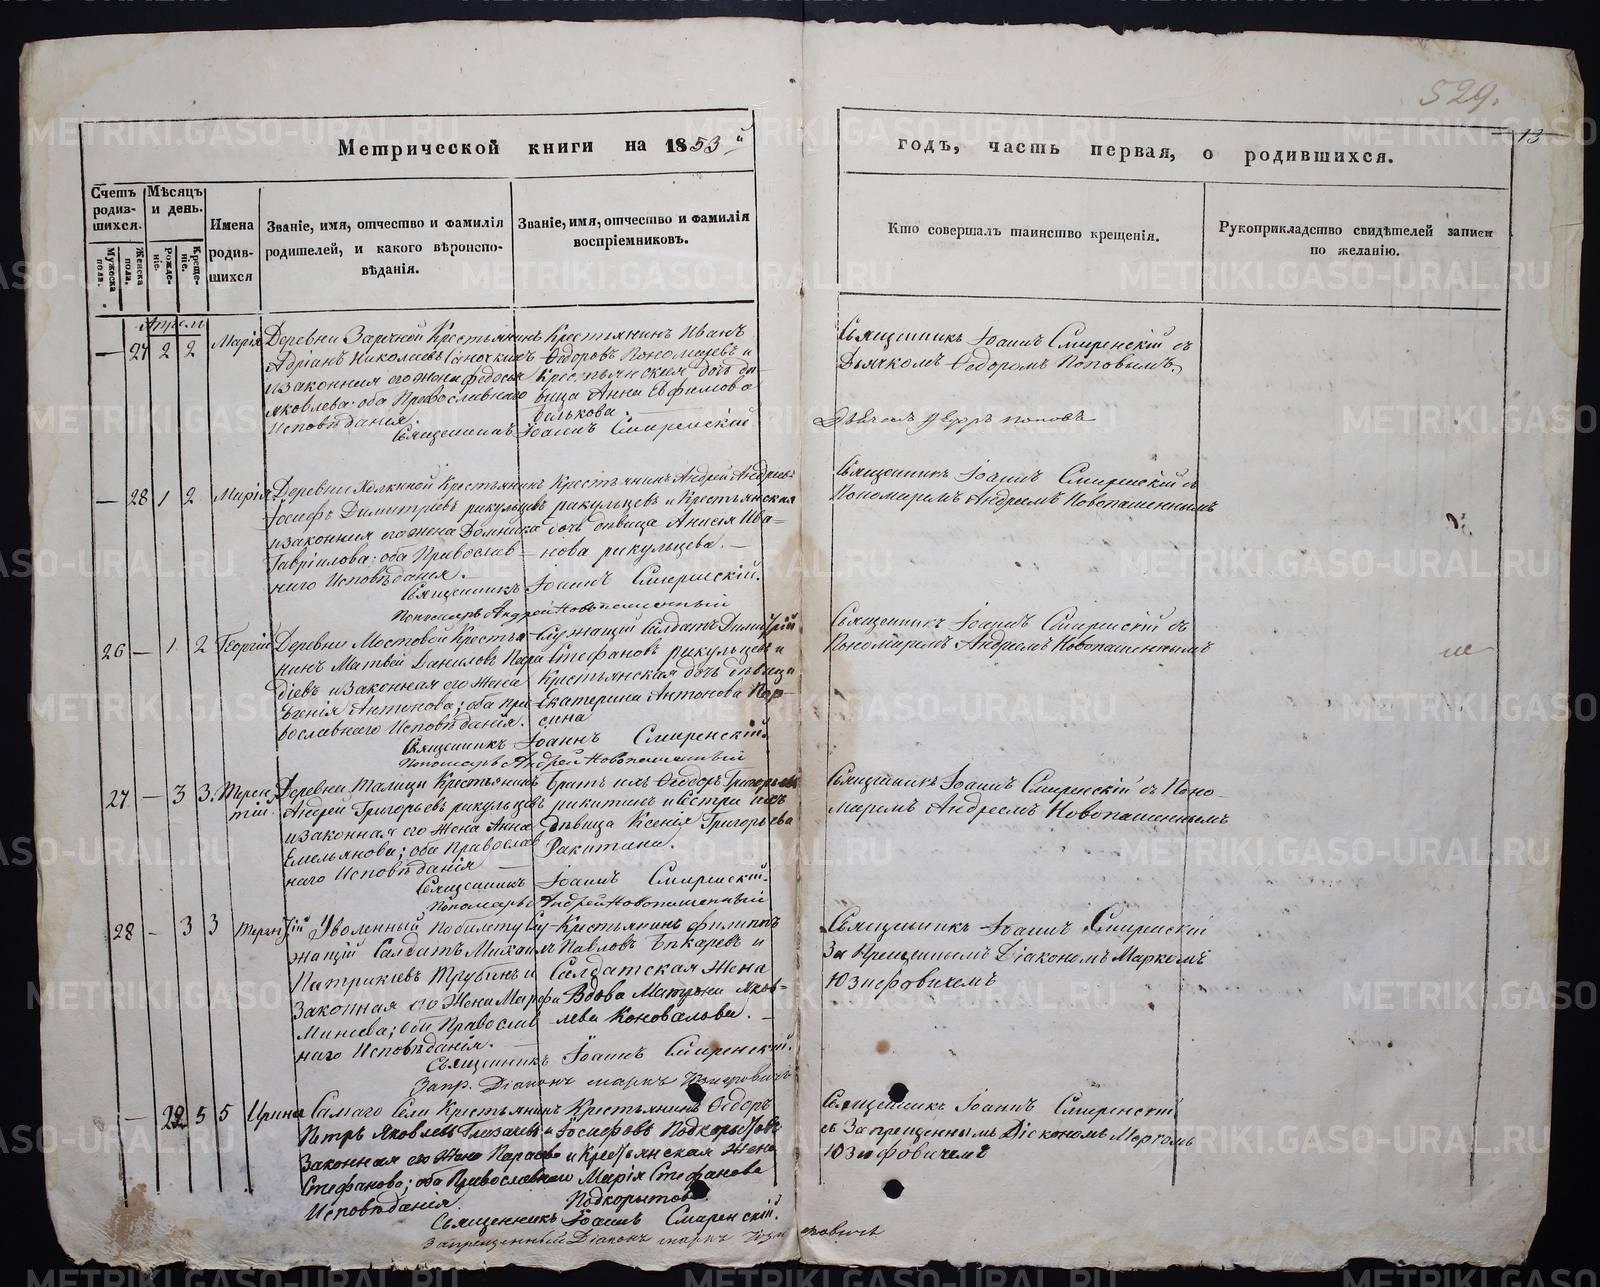 529.
13
Метрической книги на 1853й
годъ, часть первая, о родившихся.
Счетъ родив-шихся.
Мужеска пола.
Женска пола.
Мѣсяцъ и день.
Рожде-ніе.
Креще-ніе.
Имена родив-шихся
Званіе, имя, отчество и фамилія
родителей, и какого вѣроиспо-
вѣданія.
Званіе, имя, отчество и фамилія
воспріемниковъ.
Кто совершалъ таинство крещенія.
Рукоприкладство свидѣтелей записи
по желанію.
— 27 2 2 Марія
Деревни Заречной Крестьянинъ
Адріанъ Николаевъ
и законная его жена Федосья
Яковлева. оба Православнаго
Исповѣданія.
Крестьянинъ Иванъ
Федоровъ Пономаревъ и
Крестьянская дочь дѣ-
вица Анна Ефимова
Священникъ Іоаннъ Смиренскій
Священникъ Іоаннъ Смиренскій съ
Дьячкомъ Федоромъ Поповымъ,
— 28 1 2 Марія
Деревни Крестьянинъ
Іосифъ Димитріевъ рикульцевъ
и законная его жена Домника
Гавріилова. оба Православ-
наго Исповѣданія.
Крестьянинъ Андрей
рикульцевъ и Крестьянская
дочь дѣвица Анисія Ива-
нова рикульцева. —
Священникъ Іоаннъ Смиренскій.
Пономарь Андрей Новопашенный
Священникъ Іоаннъ Смиренскій съ
Пономаремъ Андреемъ Новопашеннымъ
26 — 1 2 Георгій
Деревни Мостовой Крестья-
нинъ Матвей Даниловъ
и законная его жена
Евгенія Антонова; оба Пра-
вославнаго Исповѣданія.
Служащій Солдатъ Димитрій
Стефановъ рикульцевъ и
Крестьянская дочь дѣвица
Екатерина Антонова
Священникъ Іоаннъ Смиренскій.
Пономарь Андрей Новопашенный
Священникъ Іоаннъ Смиренскій съ
Пономаремъ Андреемъ Новопашеннымъ
27 — 3 3. Терен-тій.
Деревни Талицы Крестьянинъ
Андрей Григорьевъ рикульцевъ
и законная его жена Анна
Емельянова; оба Православ
наго Исповѣданія —
Братъ ихъ Феодоръ Григорьевъ
и сестра ихъ
дѣвица Ксенія Григорьева
Ракитина.
Священникъ Іоаннъ Смиренскій.
Пономарь Андрей Новопашенный
Священникъ Іоаннъ Смиренскій съ Поно-
маремъ Андреемъ Новопашеннымъ
28 — 3 3 Терентій
Уволенный по билету Слу-
жащій Солдатъ Михаилъ
Патрикіевъ Трубинъ и
Законная его жена Марфа
Минеева; оба Православ
наго Исповѣданія. —
Крестьянинъ Филиппъ
Павловъ Бѣкаревъ и
Солдатская жена
Вдова Матрона Яков-
лева Коновалова. —
Священникъ Іоаннъ Смиренскій.
Запр. Діаконъ Маркъ
Священникъ Іоаннъ Смиренскій
За Прещеннымъ Діакономъ Маркомъ
Юзефовичемъ
— 29 5 5 Ирина
Самаго Села Крестьянинъ
Петръ Яковлевъ Глазачевъ и
Законная его жена
Стефанова; оба Православнаго
Исповѣданія.
Крестьянинъ Федоръ
Іосифовъ Подкорытовъ
и Крестьянская жена
Марія Стефанова
Подкорытова.
Священникъ Іоаннъ Смиренскій.
Запрещенный Діаконъ Маркъ
Священникъ Іоаннъ Смиренскій
съ Запрещеннымъ Діакономъ Маркомъ
Юзефовичемъ
METRIKI.GASO-URAL.RU